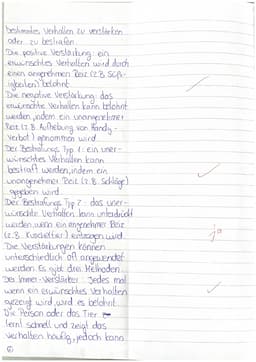 bestimmtes Verhalten zu verstärken
oder zu bestrafen.
Die positive Verstärkung: ein
erwünschtes Verhalten wird durch
einen angenehmen Reiz (z.B Süß-
igkeiten) belohnt
Die negative Verstärkung: das
erwünschte Verhalten kann belohnt
werden, indem ein unangenehmer
Reiz (z.B. Aufhebung von Handy-
verbot) genommen wird.
Der Bestrafungs Typ 1: ein uner-
wünschtes Verhalten kann
bestraft werden, indem ein
unangenehmer Reiz (z.B. Schläge)
gegeben wird.
Der Bestrafungs Typ 2: das uner-
wünschte Verhalten kann unterdrückt
werden wenn ein angenehmer Reiz
(z.B. Kuscheltier) entzogen wird.
ja
Die Verstärkungen können
unterschiedlich oft angewendet
werden. Es gibt drei Methoden.
Der Immer-Verstärker: Jedes mal
wenn ein erwünschtes Verhalten
gezeigt wird, wird es belohnt.
Die Person oder das Tier
lernt schnell und zeigt das
verhalten häufig, jedoch kann